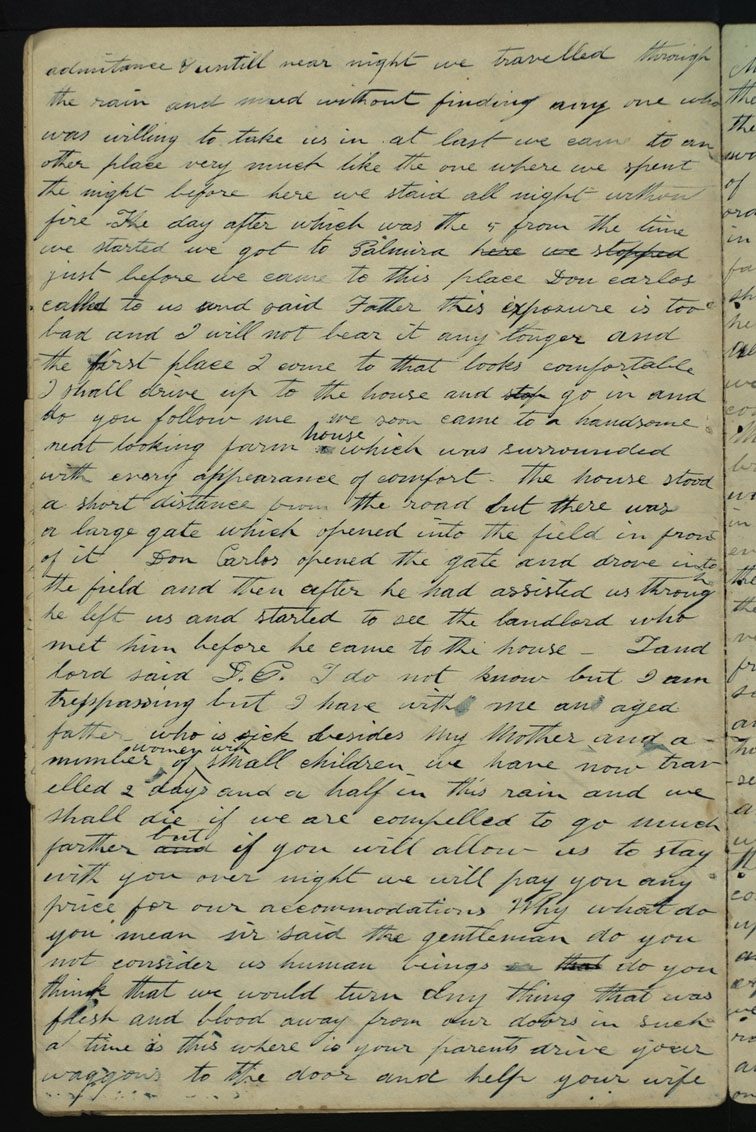 admitance & untill near night we travelled through
the rain and mud without finding any one who
was willing to take us in at last we came to an
other place very much like the one where we spent
the night before here we staid all night without
fire The day after which was the 5 from the time
we started we got to Palmira here we stopped
just before we came to this place Don carlos
called to us and said Father this exposure is too
bad and I will not bear it any longer and
the first place I come to that looks comfortable
I shall drive up to the house and stop go in and
do you follow me we soon came to a handsome
neat looking farm house which was surrounded
with every appearance of comfort. The house stood
a short distance from the road but there was
a large gate which opened into the field in front
of it Don Carlos opened the gate and drove into
the field and then after he had assisted us through
he left us and started to see the landlord who
met him before he came to the house — Land
lord said D. C. I do not know but I am
trespassing but I have with me an aged
father who is sick besides my Mother and a
number of women with small children we have now trav
elled 2 days and a half in this rain and we
shall die if we are compelled to go much
farther and but if you will allow us to stay
with you over night we will pay you any
price for our accommodations Why what do
you mean sir said the gentleman do you
not consider us human beings that do you
think that we would turn any thing that was
flesh and blood away from our doors in such
a time as this where is your parents drive your
waggons to the door and help your wife